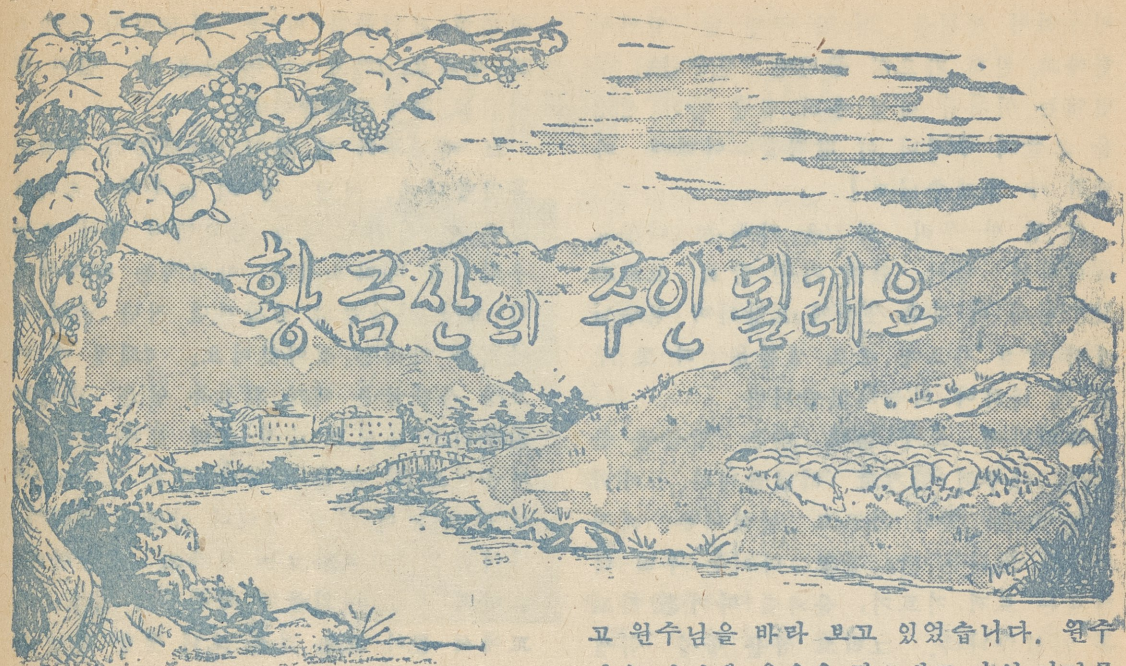 황금산의 주인 될래요
고 원수님을 바라 보고 있었습니다. 원수